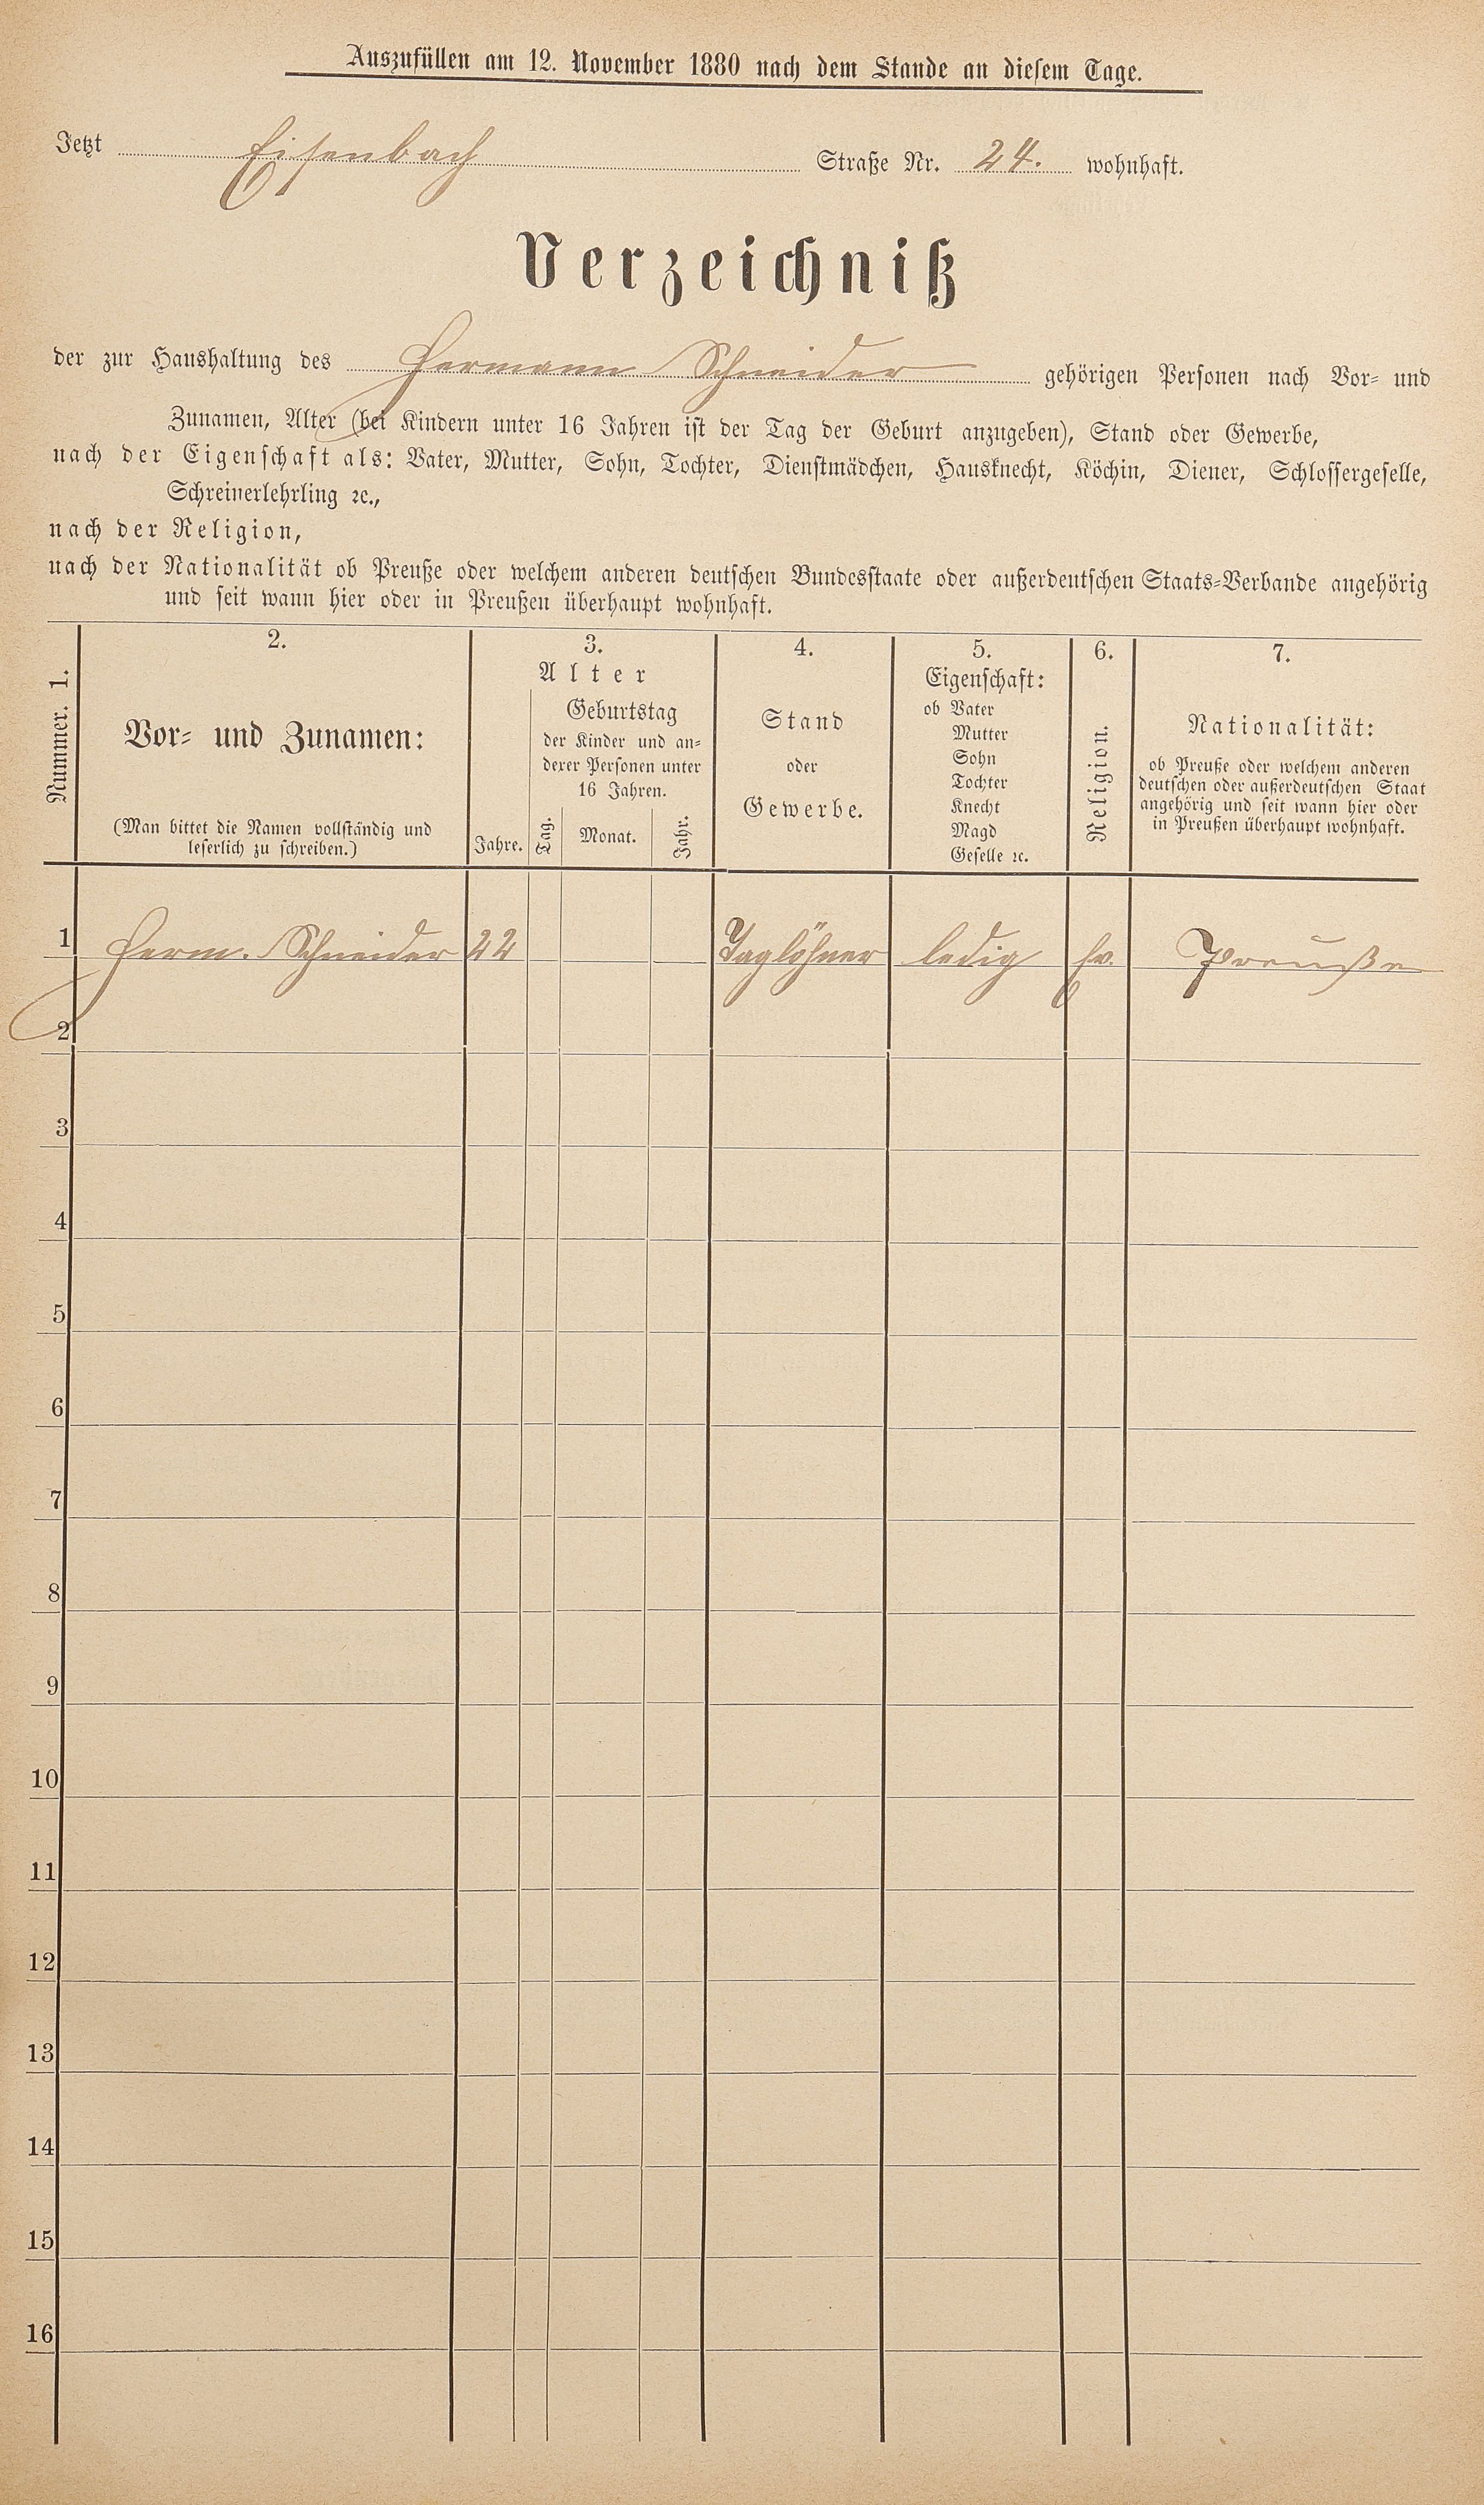 Auszufüllen am 12. November 1880 nach dem Stande an diesem Tage.
Jetzt Eisenbach Straße Nr. 24. wohnhaft.
Verzeichniß
der zur Haushaltung des Hermann Schneider gehörigen Personen nach Vor- und
Zunamen, Alter (bei Kindern unter 16 Jahren ist der Tag der Geburt anzugeben), Stand oder Gewerbe,
nach der Eigenschaft als: Vater, Mutter, Sohn, Tochter, Dienstmädchen, Hausknecht, Köchin, Diener, Schlossergeselle,
Schreinerlehrling ꝛc.,
nach der Religion,
nach der Nationalität ob Preuße oder welchem anderen deutschen Bundesstaate oder außerdeutschen Staats-Verbande angehörig
und seit wann hier oder in Preußen überhaupt wohnhaft.
Nummer. 1.
2.
Vor- und Zunamen:
(Man bittet die Namen vollständig und
leserlich zu schreiben.)
3.
Alter
Jahre.
Geburtstag
der Kinder und an-
derer Personen unter
16 Jahren.
Tag. Monat. Jahr.
4.
Stand
oder
Gewerbe.
5.
Eigenschaft:
ob Vater
Mutter
Sohn
Tochter
Knecht
Magd
Geselle ꝛc.
6.
Religion.
7.
Nationalität:
ob Preuße oder welchem anderen
deutschen oder außerdeutschen Staat
angehörig und seit wann hier oder
in Preußen überhaupt wohnhaft.
1 Herm. Schneider 22 Taglöhner ledig ev. Preuße
2
3
4
5
6
7
8
9
10
11
12
13
14
15
16